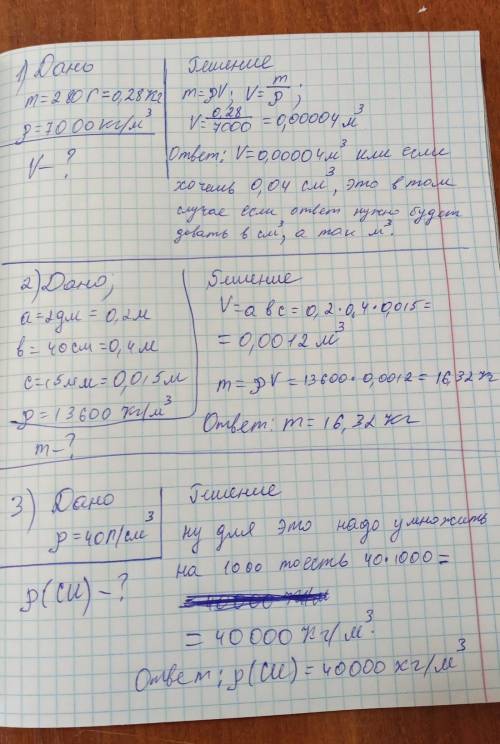 1) Дано
m=280г=0,28кг
ρ=7000кг/м³
V-?
Решение
m=ρV; V=m/ρ;
V=0,28/7000=0,00004м³
Ответ: V=0,00004м³ или если
хочешь 0,04 см³, это в том
случае если ответ нужно будет
довать в см³, а так м³.
2) Дано;
a=2дм=0,2м
в=40см=0,4м
c=15мм=0,015м
ρ=13600 кг/м³
m-?
Решение
V=a в c=0,2·0,4·0,015=
=0,0012м³
m=ρV=13600·0,0012=16,32кг
Ответ: m=16,32кг
3) Дано
ρ=40г/см³
ρ(СИ)-?
Решение
ну для это надо умножить
на 1000 тоесть 40·1000=
=40000кг/м³.
Ответ; ρ(СИ)=40000кг/м³